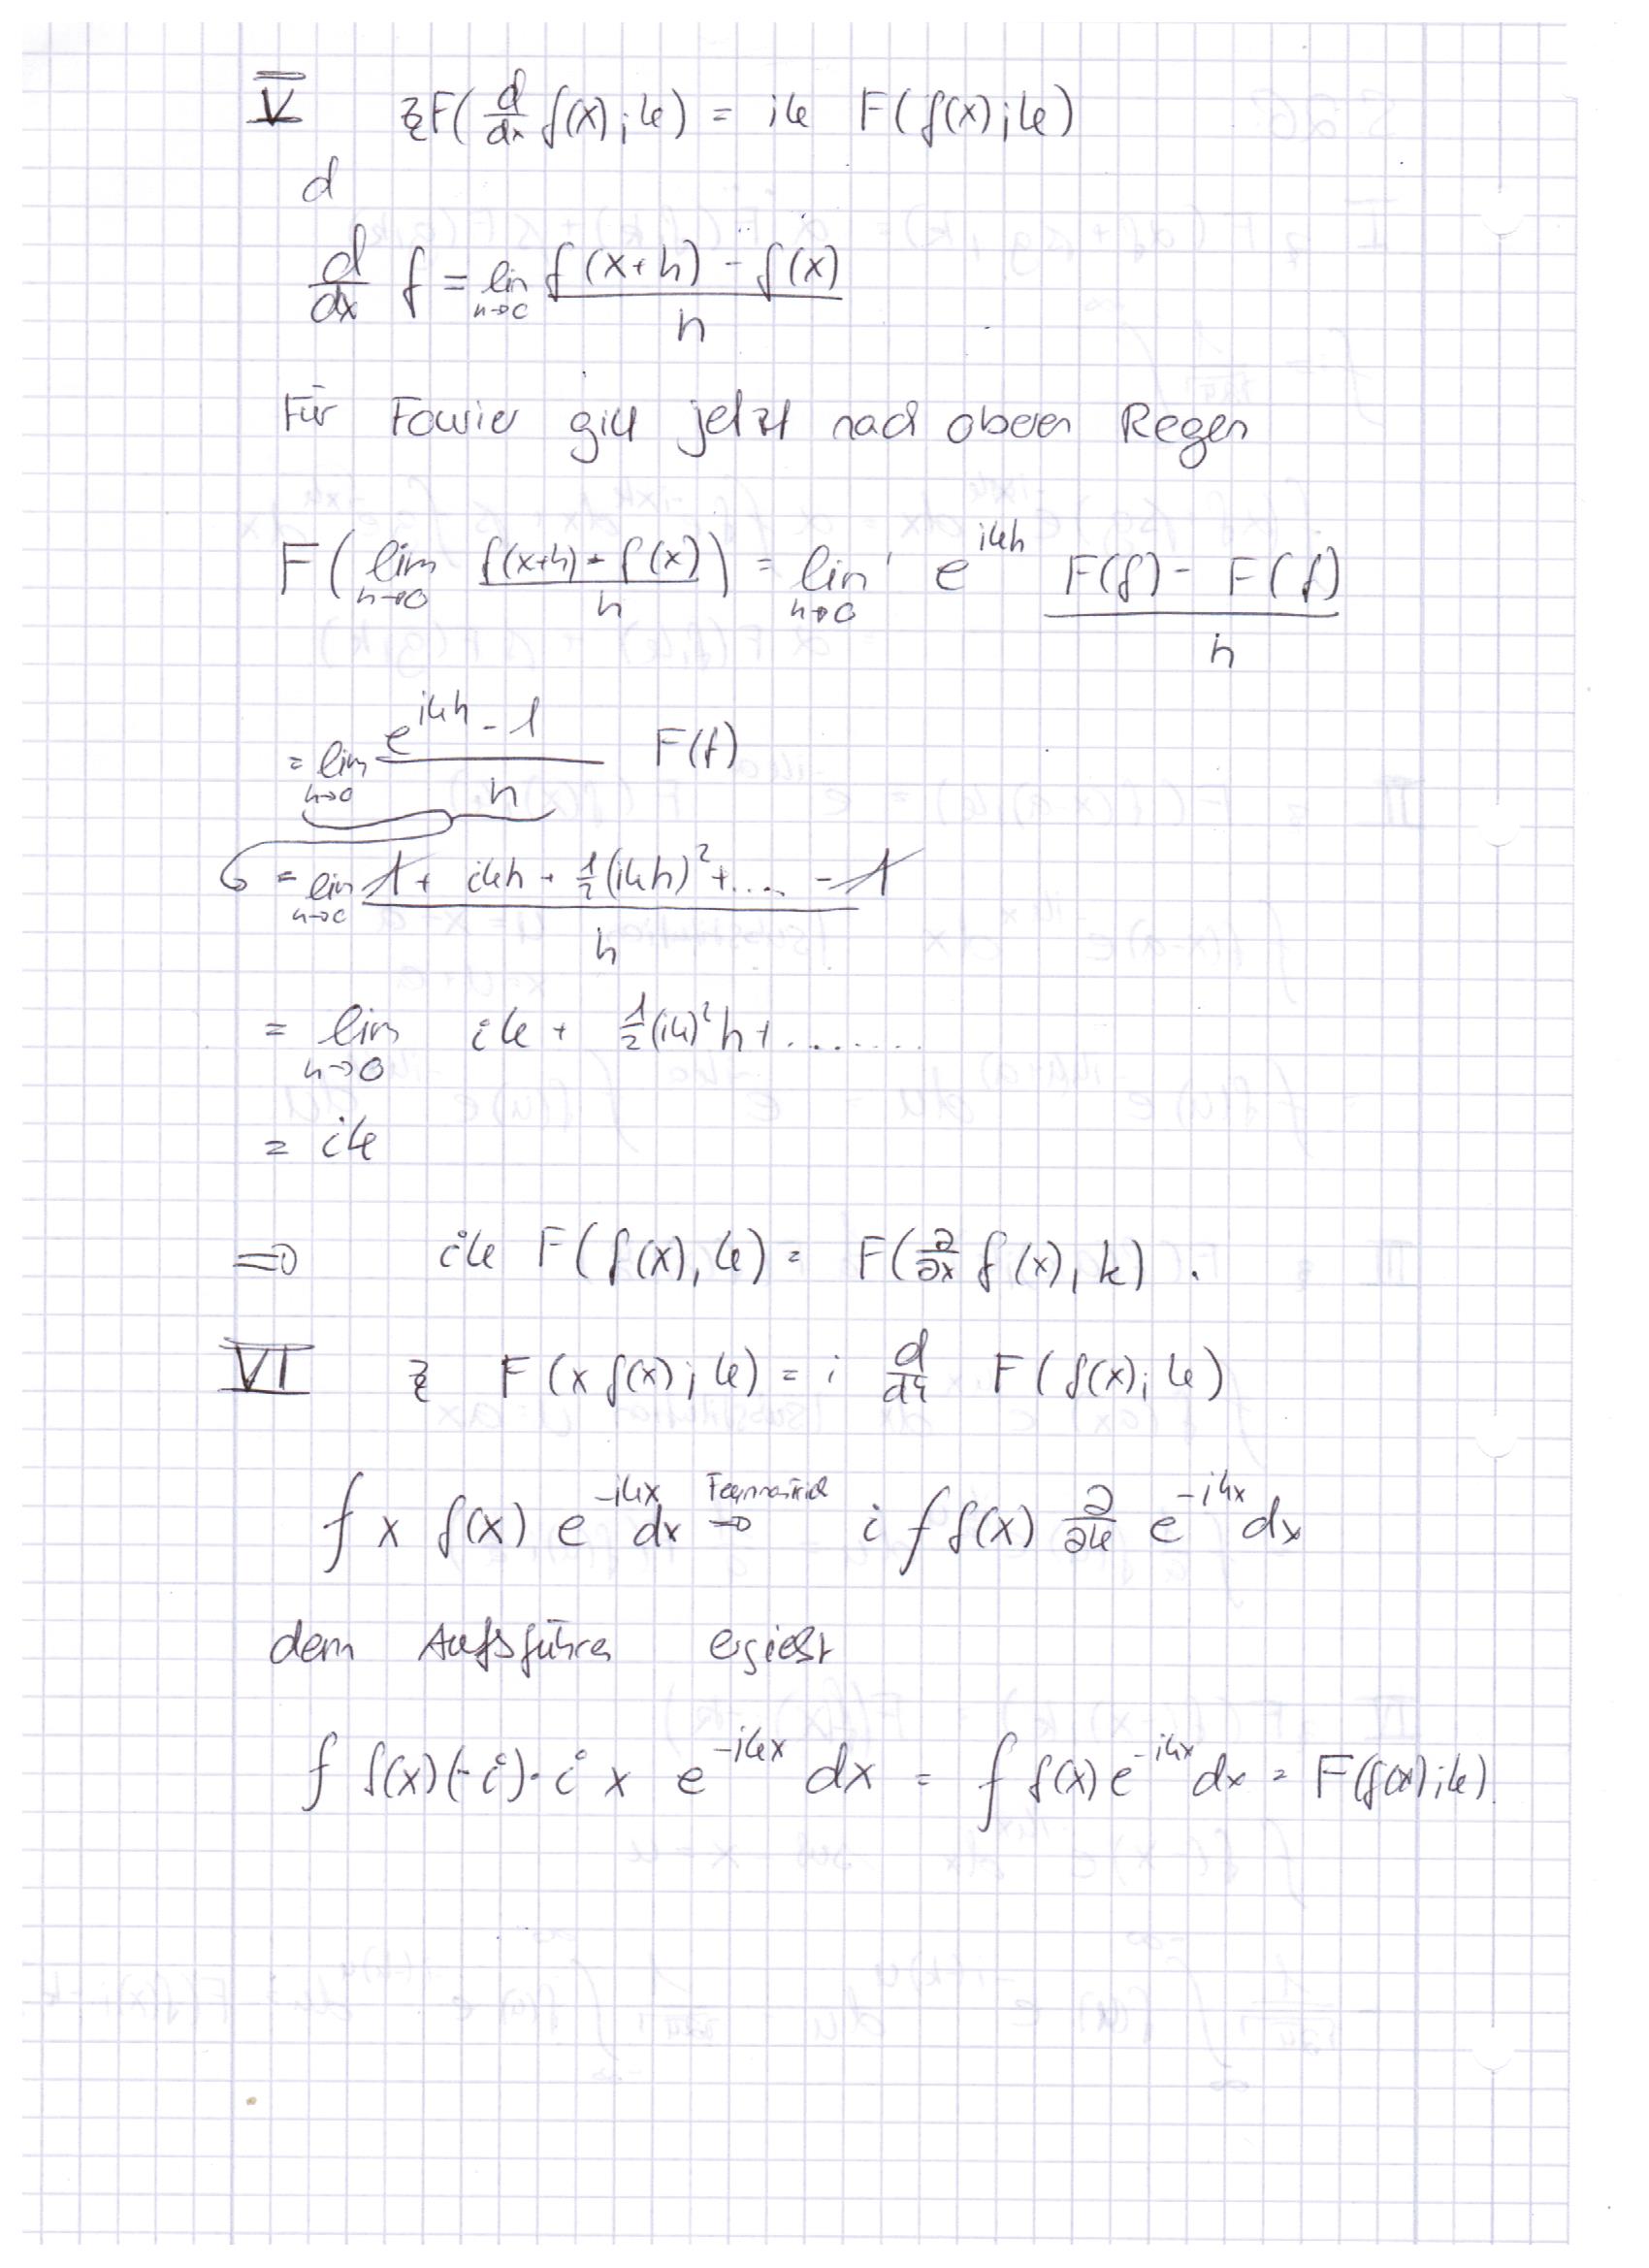 V zz F(d/dx f(x); k) = ik F(f(x); k)
d
d/dx f = lim h→0 (f(x+h) - f(x))/h
Für Fourier gilt jetzt nach oberen Regen
F(lim h→0 (f(x+h) - f(x))/h) = lim h→0 e^{ikh} (F(f) - F(f))/h
= lim h→0 (e^{ikh} - 1)/h F(f)
= lim h→0 (1 + ikh + 1/2 (ikh)² + .... - 1)/h
= lim h→0 ik + 1/2 (ik)² h + ........
= ik
⇒ ik F(f(x), k) = F(∂/∂x f(x), k).
VI zz F(x f(x); k) = i d/dk F(f(x); k)
∫ x f(x) e^{-ikx} dx ⇒ i ∫ f(x) ∂/∂k e^{-ikx} dx
denn ergiebt
∫ f(x) (-i)·i x e^{-ikx} dx = ∫ f(x) e^{-ikx} dx = F(f(x); k).